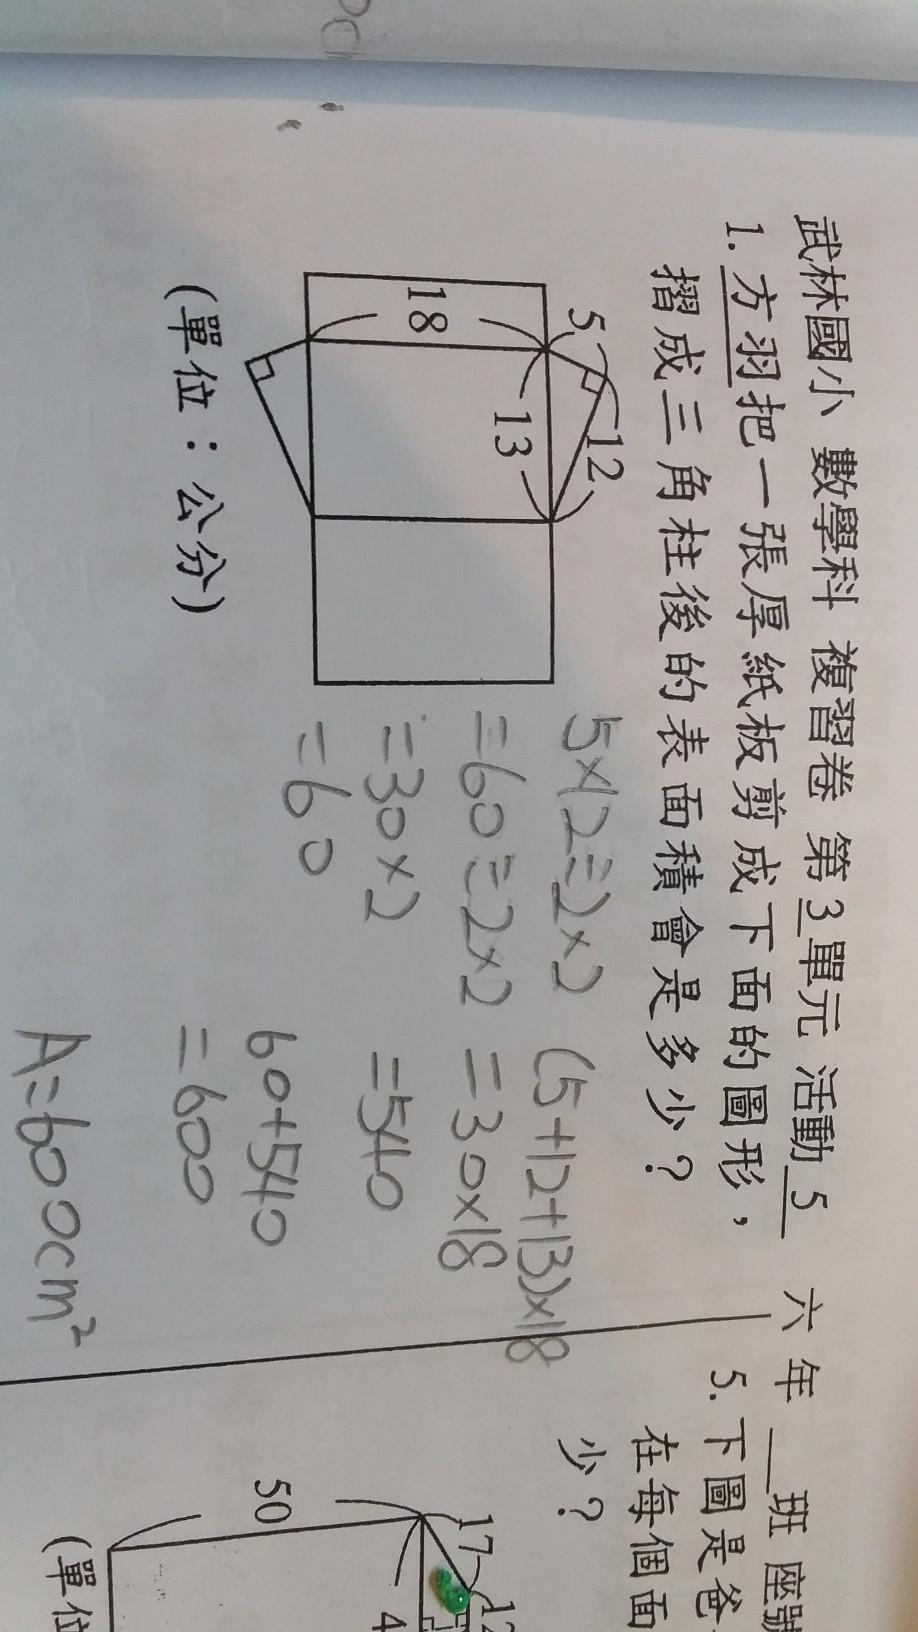 武林國小 數學科 複習卷 第3單元 活動5 六年__班 座號
1. 方羽把一張厚紙板剪成下面的圖形，
摺成三角柱後的表面積會是多少？
5
12
18
13
(單位：公分)
5×12÷2×2
=60÷2×2
=30×2
=60
(5+12+13)×18
=30×18
=540
60+540
=600
A=600cm²
5. 下圖是爸
在每個面
少？
17
12
50
4
(單位